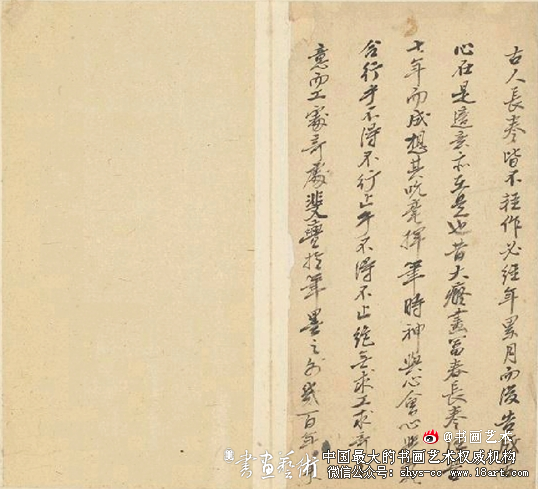 古人長卷皆不輕作必經年累月而後告成
心在是
意亦在是也昔大癡畫富春長卷經
七年而成想其吮毫揮筆時神與心會心與
合行乎不得不行止乎不得不止絕無求工求奇
意而工處奇處斐亹於筆墨之外幾百年
@书画艺术
書畫藝術
中国最大的书画艺术权威机构
微信公众号：shys-cc www.18art.com